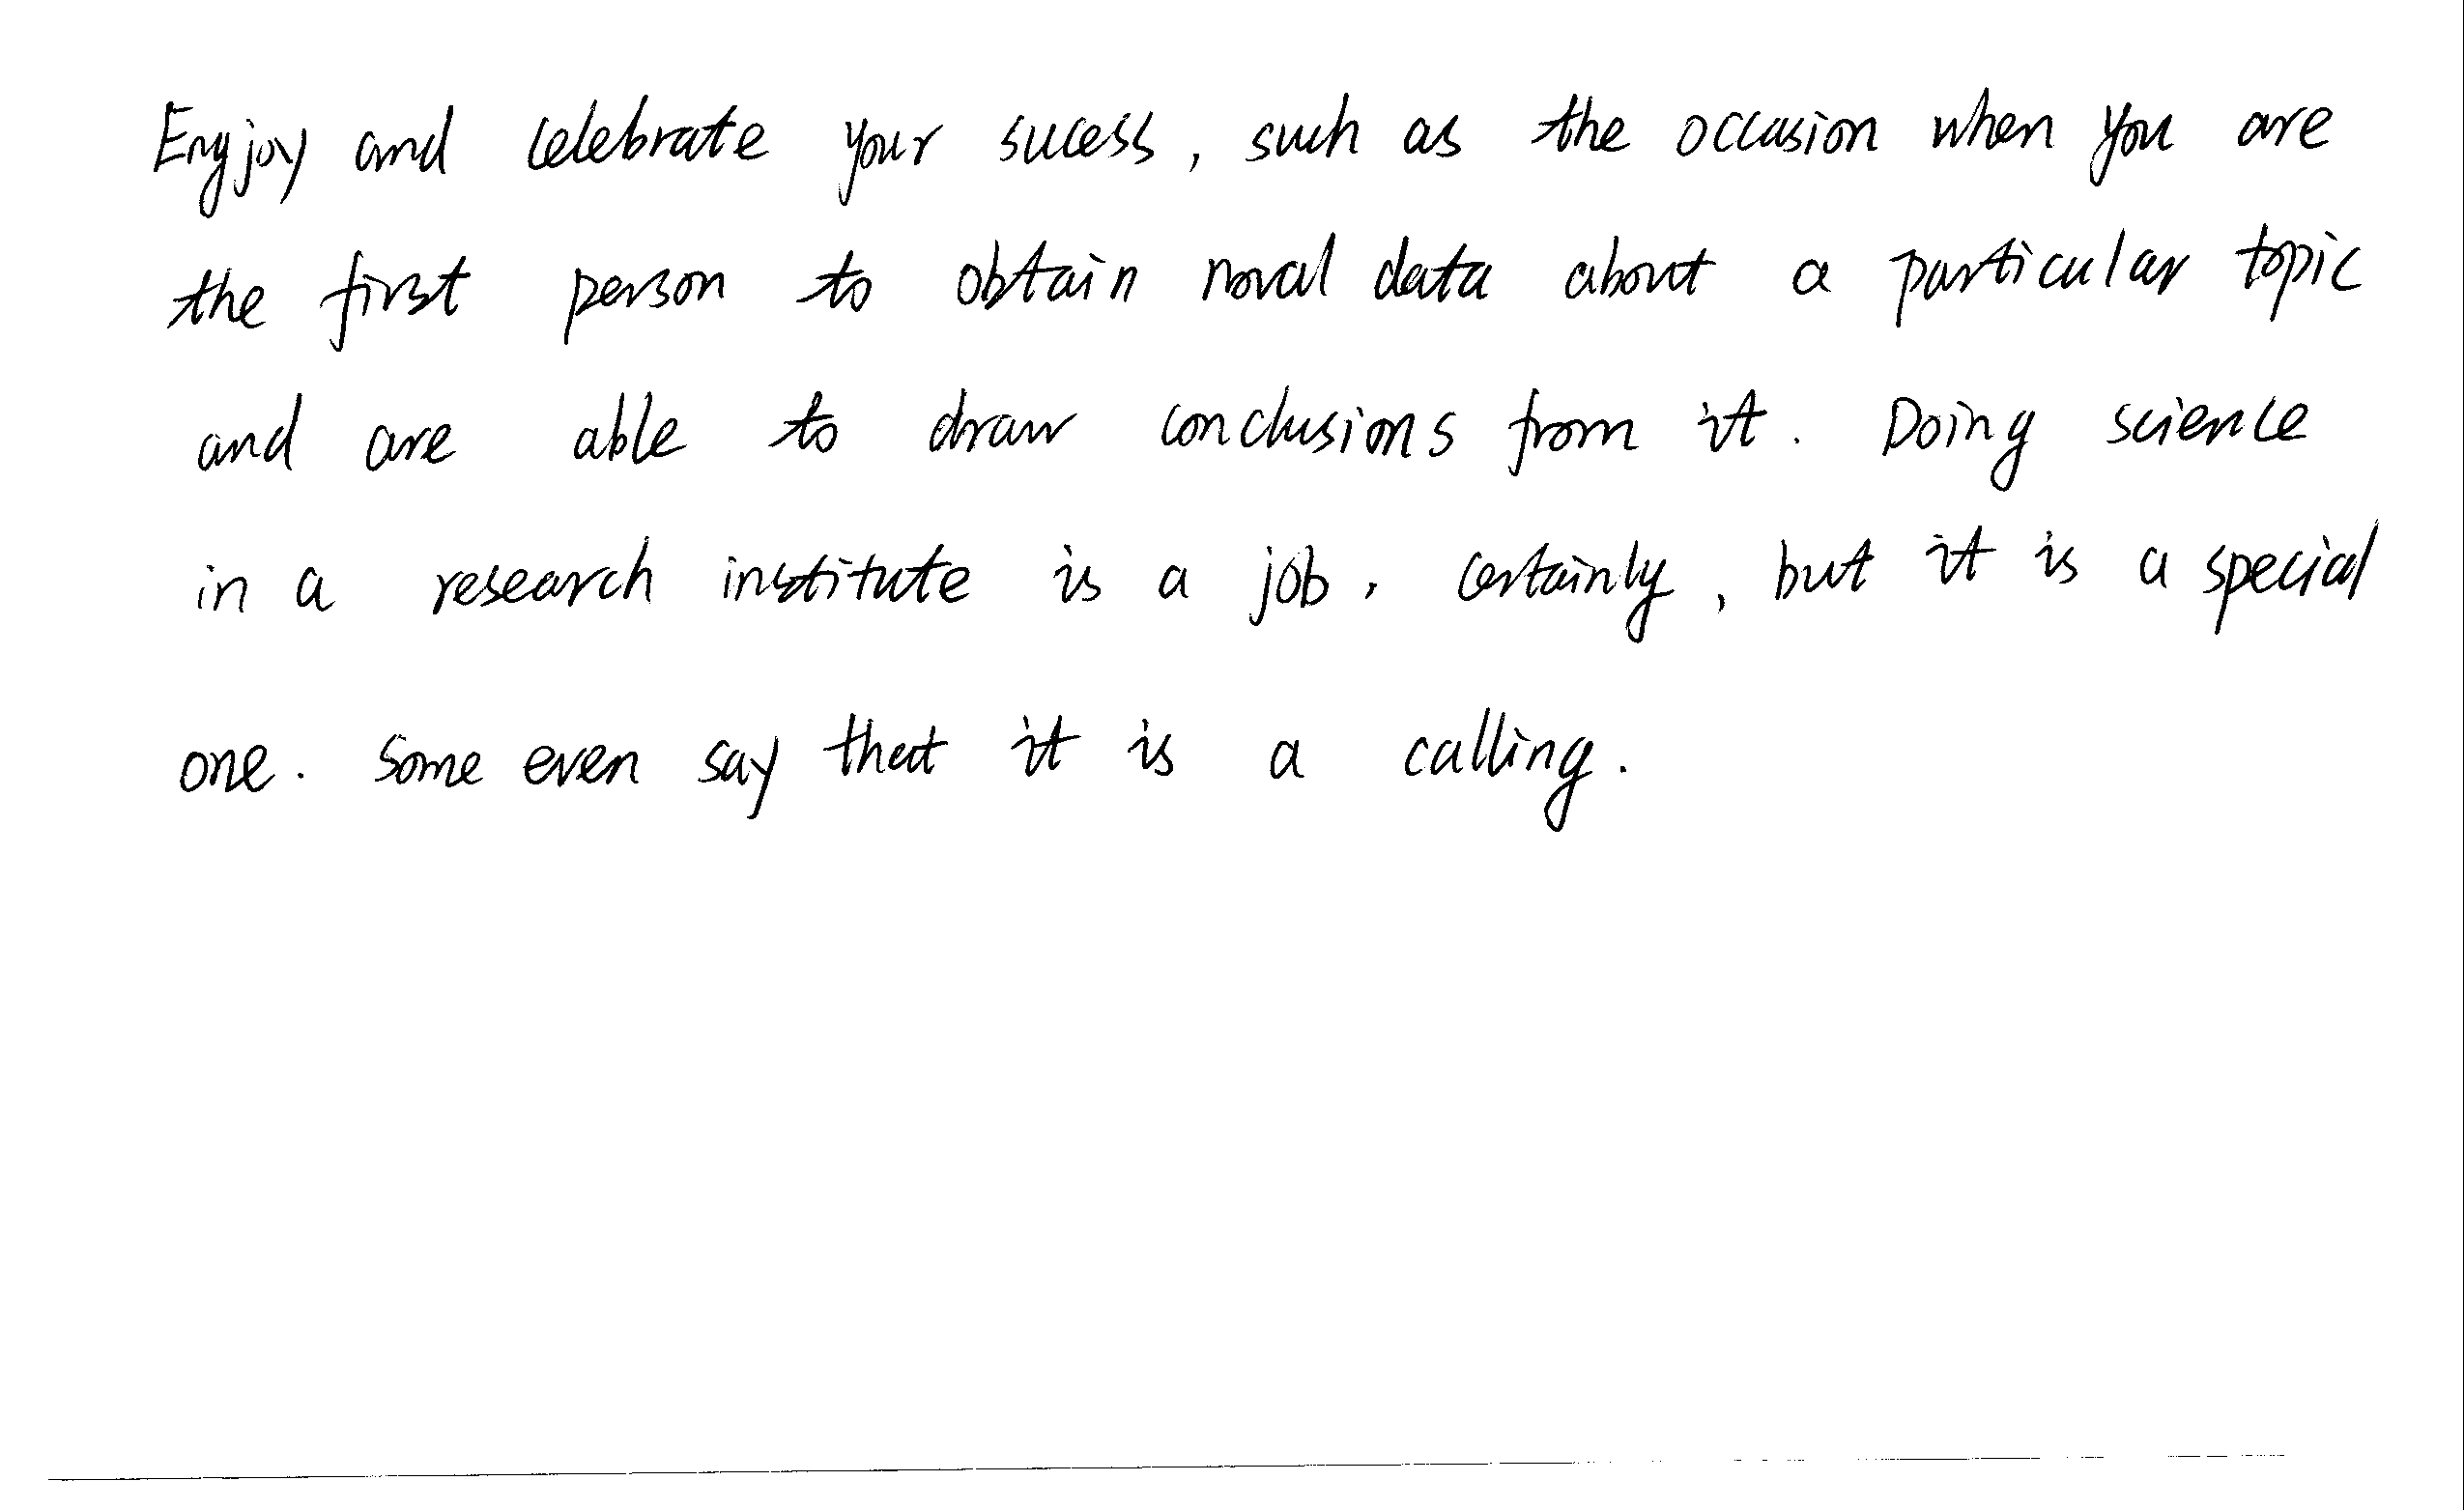 Engjoy and celebrate your sucess, such as the occasion when you are
the first person to obtain noval data about a particular topic
and are able to draw conclusions from it. Doing science
in a research institute is a job, certainly, but it is a special
one. Some even say that it is a calling.